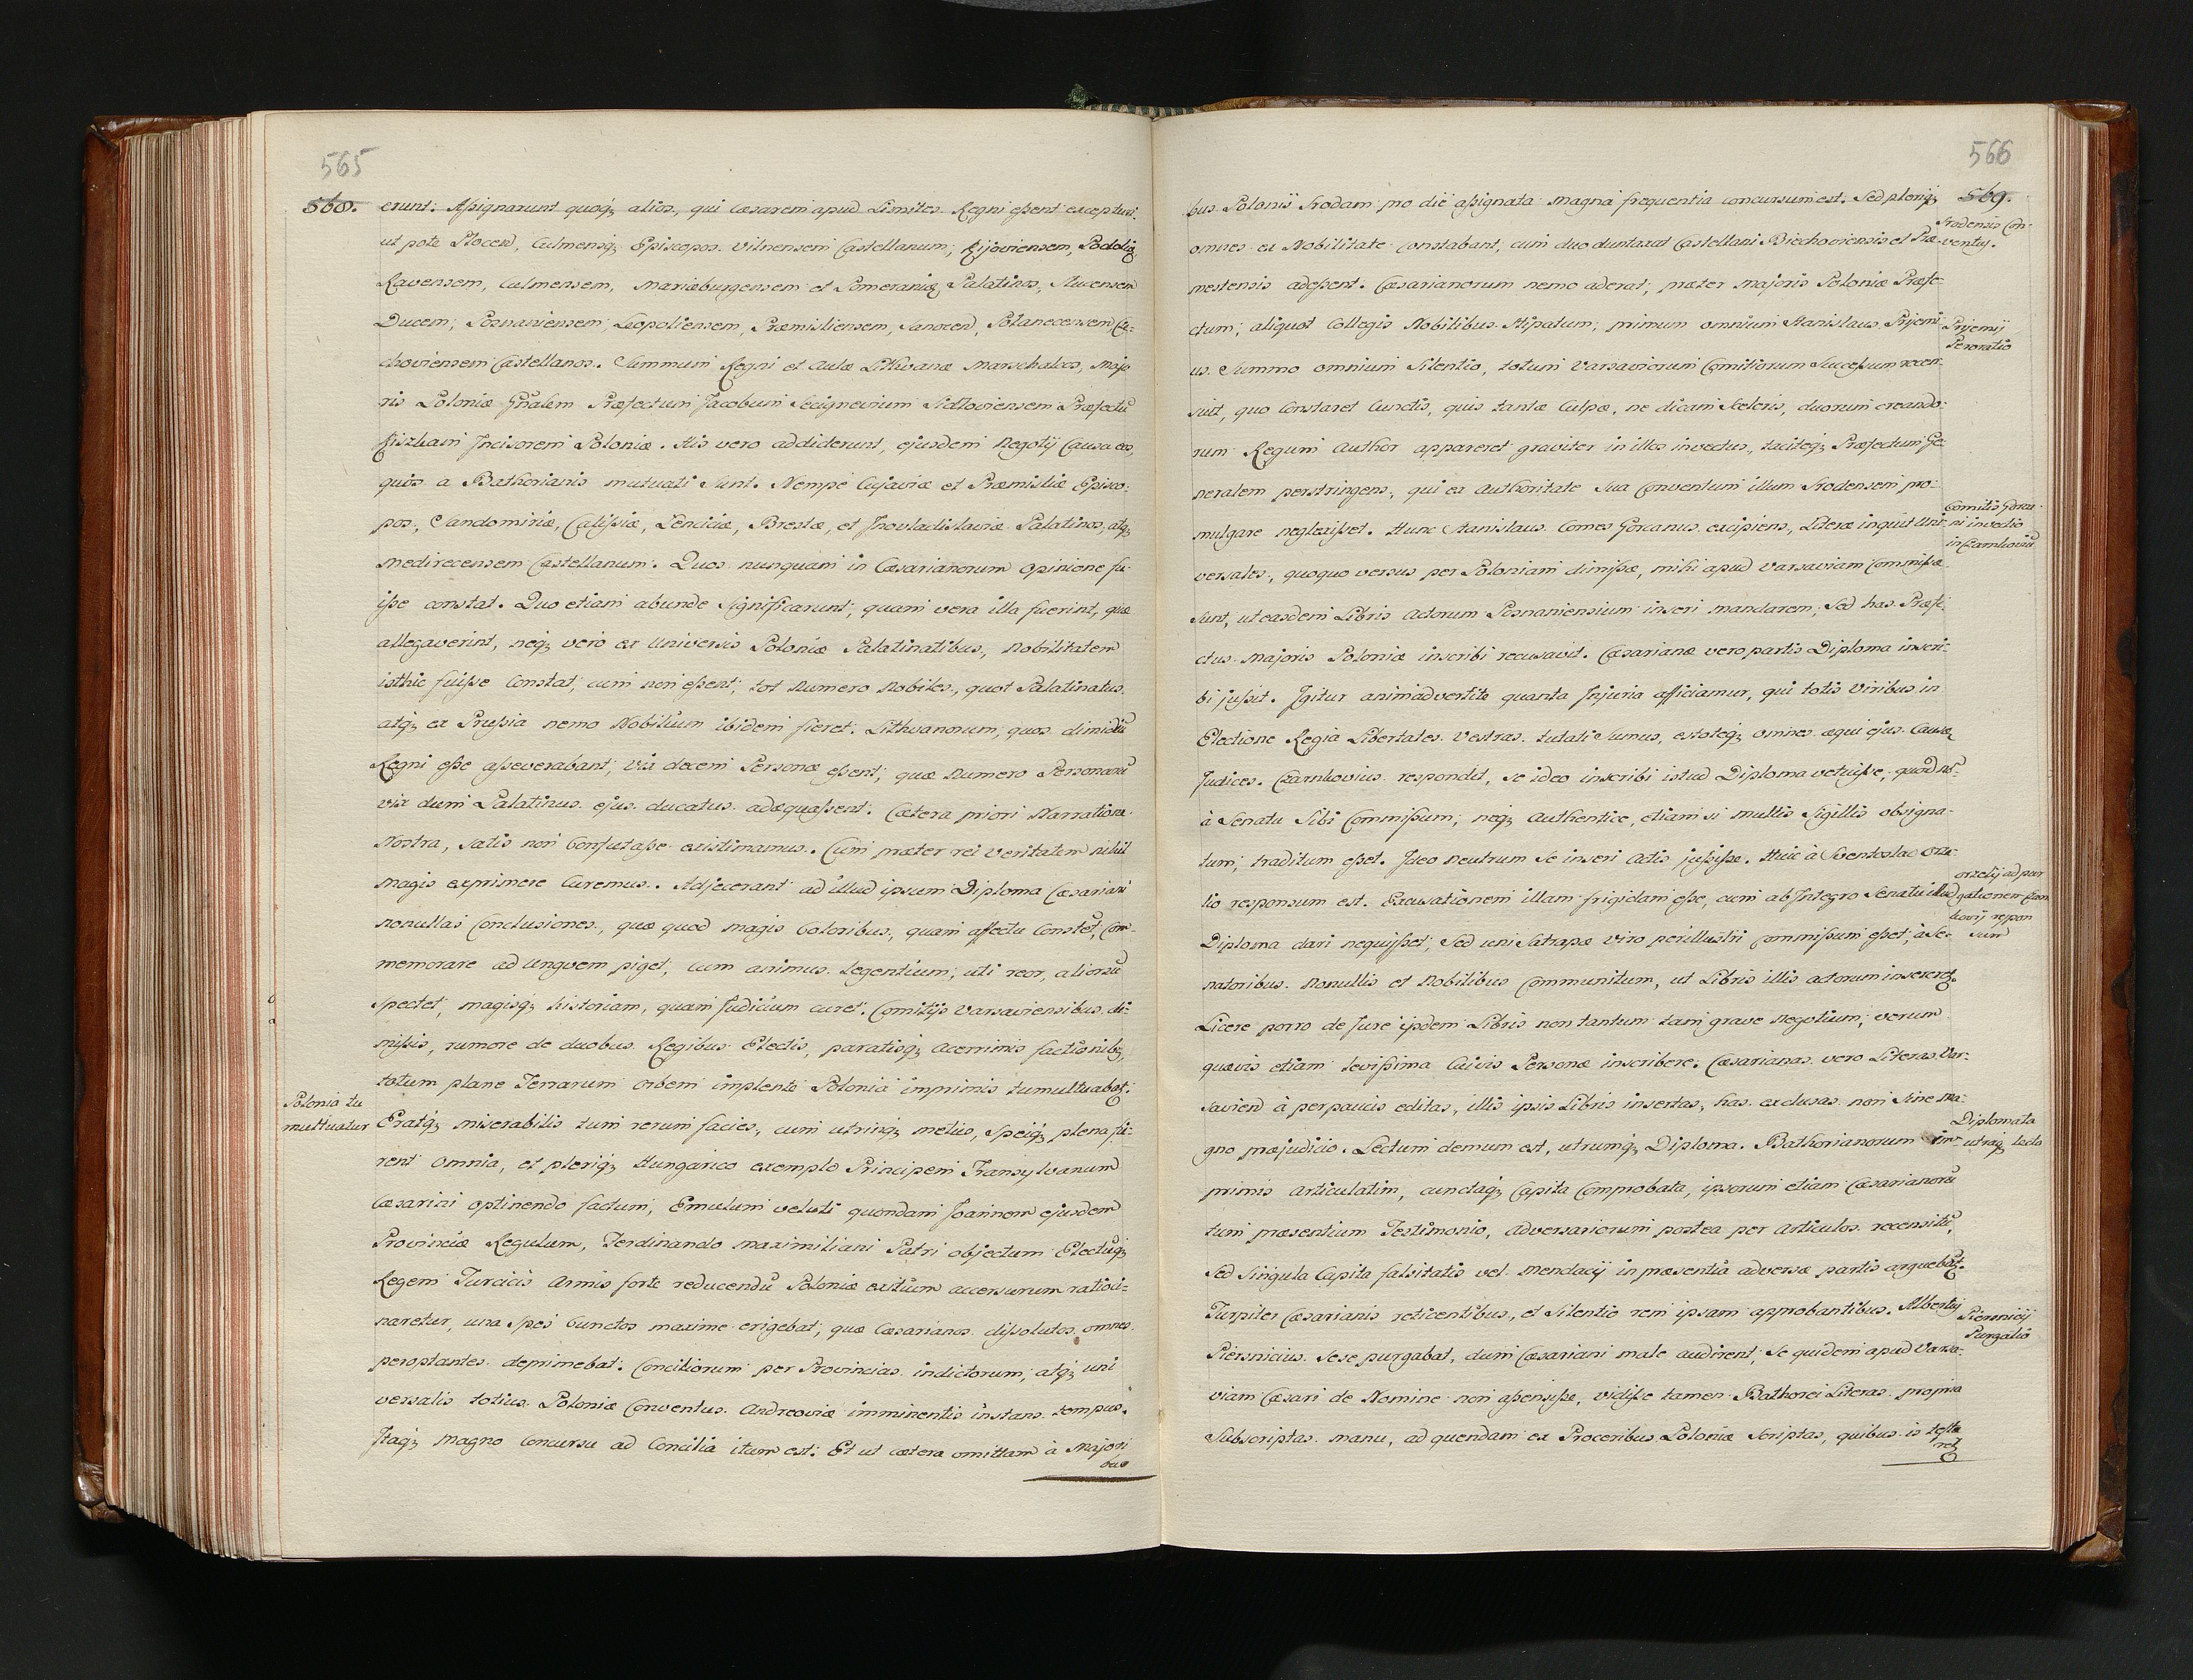 565
568.
erunt. Assignarunt quoq; alios, qui Cæsarem apud Limites Regni essent excepturi.
ut pote Plocen, Culmensq; Episcopos. Vilnensem Castellanum, Kijoviensem, Podoliæ,
Ravensem, Culmensem, Mariæburgensem et Pomeraniæ Palatinos, Slucensem
Ducem; Posnaniensem, Leopoliensem, Præmisliensem, Sanocen, Polanecensem Cie-
choviensem Castellanos. Summum Regni et Aulæ Lithvanæ Marschalcos, Majo
ris Poloniæ Gñalem Præfectum Jacobum Secignevium Sidloviensem Præfectũ
Kiszkam Incisorem Poloniæ. His vero addiderunt, ejusdem Negotij Causa eos,
quos a Bathorianis mutuati Sunt. Nempe Cujaviæ et Præmisliæ Episco-
pos, Sandomiriæ, Calissiæ, Lenciciæ, Brestæ, et Inovladislaviæ Palatinos, atq;
Medirecensem Castellanum. Quos nunquam in Cæsarianorum opinione fu-
isse constat. Quo etiam abunde Significarunt, quam vera illa fuerint, quæ
allegaverint, neq; vero ex Universis Poloniæ Palatinatibus, Nobilitatem
isthic fuisse Constat, cum non essent, tot Numero Nobiles, quot Palatinatus.
atq; ex Prussia nemo Nobilium ibidem fieret. Lithvanorum, quos dimidiũ
Regni esse asseverabant, vix decem Personæ essent, quæ Numero Personarũ
vix dum Palatinus ejus ducatus adæquassent. Cætera priori Narratione
Nostra, satis non Confutasse existimamus. Cum præter rei Veritatem nihil
magis exprimere Curemus. Adjecerant ad illud ipsum Diploma Cæsariani
nonullas Conclusiones, quæ quod magis Coloribus, quam affectu Constet, Com-
memorare ad Unguem piget, cum animus Legentium, uti reor, aliorsũ
Spectet, magisq; historiam, quam Judicium curet. Comitijs Varsaviensibus di-
missis, rumore de duobus Regibus Electis, paratisq; acerrimis factionibq;
totum plane Terrarum orbem implente Polonia imprimis tumultuabat;
Polonia tu
multuatur
Eratq; miserabilis tum rerum facies, cum utrinq; metus, Speiq; plena fu-
rent omnia, et pleriq; Hungarico exemplo Principem Transylvanum
Cæsarini optinendo factum, Emulum veluti quondam Joannem ejusdem
Provinciæ Regulum, Ferdinando Maximiliani Patri objectum Electũq;
Regem Turcicis Armis forte reducendũ Poloniæ exitium accersurum ratioci-
naretur, una Spes Cunctos maxime erigebat, quæ Cæsarianos dissolutos omnes
peroptantes deprimebat. Conciliorum per Provincias indictorum, atq; uni
versalis totius Poloniæ Conventus Andreoviæ imminentis instans tempus.
Itaq; magno Concursu ad Concilia itum est. Et ut cætera omittam à Majori
bus
566
569.
bus Polonis Srodam pro die assignata magna frequentia concursum est. Sed pleriq;
Srodensis Con-
ventus.
omnes ex Nobilitate Constabant, cum duo duntaxat Castellani Biechoviensis et Præ-
mestensis adessent. Cæsarianorum nemo aderat, præter Majoris Poloniæ Præfe-
ctum, aliquot Collegis Nobilibus Stipatum; primum omnium Stanislaus Prijemi-
Prijemij
Peroratio
us Summo omnium Silentio, totum Varsaviorum Comitiorum Successum recen-
suit, quo Constaret Cunctis, quis tantæ Culpæ, ne dicam Sceleris, duorum creando-
rum Regum Author appareret graviter in illos invectus, taciteq; Præfectum Ge-
neralem perstringens, qui ex Authoritate Sua Conventum illum Srodensem pro-
mulgare neglexisset. Hunc Stanislaus Comes Gorcanus excipiens, Literæ inquit Uni-
Comitis Gorca-
ni invectio
in Czarnkoviũ
versales, quoquo versus per Poloniam dimissæ, mihi apud Varsaviam Commissæ
Sunt, ut easdem Libris Actorum Posnaniensium inseri mandarem, Sed has Præfe-
ctus Majoris Poloniæ inscribi recusavit. Cæsarianæ vero partis Diploma inscri-
bi jussit. Igitur animadvertite quanta Injuria afficiamur, qui totis Viribus in
Electione Regia Libertates Vestras tutati Sumus, estoteq; omnes æqui ejus Causæ
Judices. Czarnkovius respondit, se ideo inscribi istud Diploma vetuisse, quod nõ
à Senatu Sibi Commissum, neq; Authentice, etiam si multis Sigillis obsigna-
tum, traditum esset. Ideo neutrum Se inseri Actis jussisse. Huic à Sventoslao Orze-
Orzelij ad pur
gationem Czarn
kovij respon
sum
lio responsum est. Excusationem illam frigidam esse, cum ab Integro Senatu illud
Diploma dari nequisset, Sed uni Satrapæ viro perillustri commissum esset, à Se-
natoribus Nonullis et Nobilibus Communitum, ut Libris illis actorum insereret.
Licere porro de Jure ijsdem Libris non tantum tam grave Negotium, verum
quævis etiam levissima Cuivis Personæ inscribere. Cæsarianas vero Literas Var-
savien à perpaucis editas, illis ipsis Libris insertas, has exclusas non Sine ma-
gno præjudicio. Lectum demum est, utrumq; Diploma. Bathorianorum im-
Diplomata
utraq; lecta
primis Articulatim, cunctaq; Capita Comprobata, ipsorum etiam Cæsarianorũ
tum præsentium Testimonio, Adversariorum postea per Articulos recensitũ,
Sed Singula Capita falsitatis vel mendacij in præsentia adversæ partis arguebãt.
Turpiter Cæsarianis reticentibus, et Silentio rem ipsam approbantibus. Albertq;
Piersnicij
Purgatio
Piersnicius Sese purgabat, dum Cæsariani male audirent, Se quidem apud Varsa-
viam Cæsari de Nomine non assensisse, vidisse tamen Bathorei Literas propria
Subscriptas manu, ad quendam ex Proceribus Poloniæ Scriptas, quibus is testa
ret